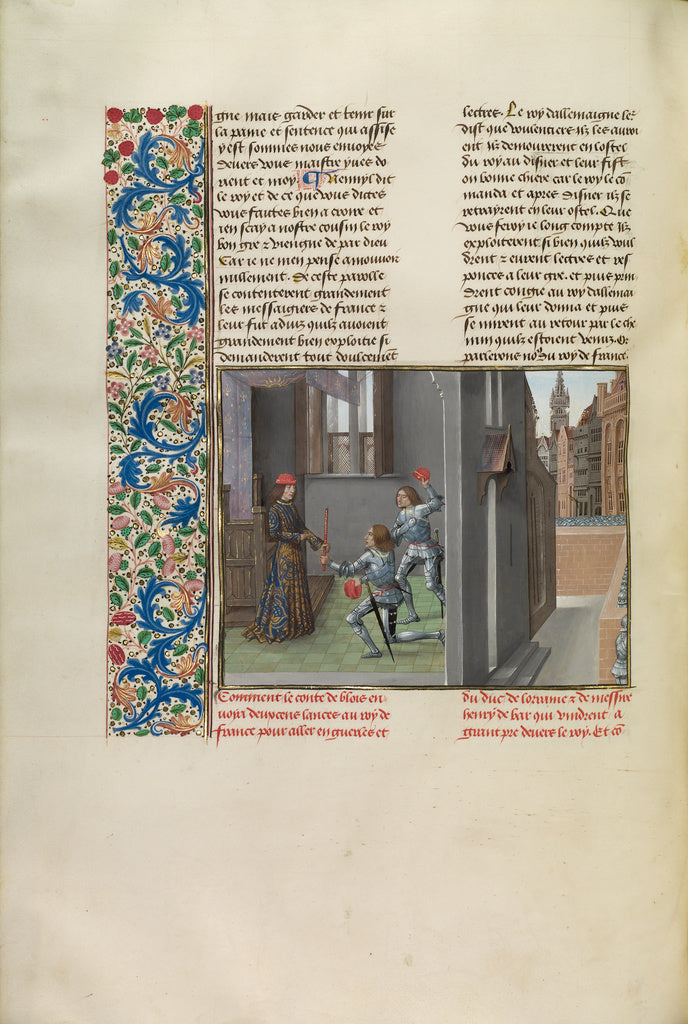 gne mais garder et tenir sur
la paine et sentence qui assise
y est sommes nous enuoyez
deuers vous maistre yues do
rient et moy. Nennyl dit
le roy et de ce que vous dictes
vous faittes bien a croire et
ien scay a nostre cousin le roy
bon gre z viengne de par dieu
Car ie ne men pense a mouuoir
nullement. De ceste parolle
se contenterent grandement
les messaigiers de france z
leur fut aduiz quilz auoient
grandement bien exploitie si
demanderent tout doulcemet
lectres. Le roy dallemaigne le
dist que voulentiers ilz les auroi
ent ilz demourerent en lostel
du roy au disner et leur fist
on bonne chiere car le roy le co
manda et apres disner ilz se
retrayrent en leur ostel. Que
vous feroy ie long compte ilz
exploiterent si bien quilz voul
drent z eurent lectres et res
ponces a leur gre. et puis prin
drent congie au roy dallemai
gne qui leur donna et puis
se mirent au retour par le che
min quilz estoient venuz. Or
parlerons no9 du roy de france.
Comment le conte de blois en
uoya deux cens lances au roy de
france pour aller en guerles et
du duc de lorraine z de messire
henry de bar qui vindrent a
grant pre deuers le roy. Et co